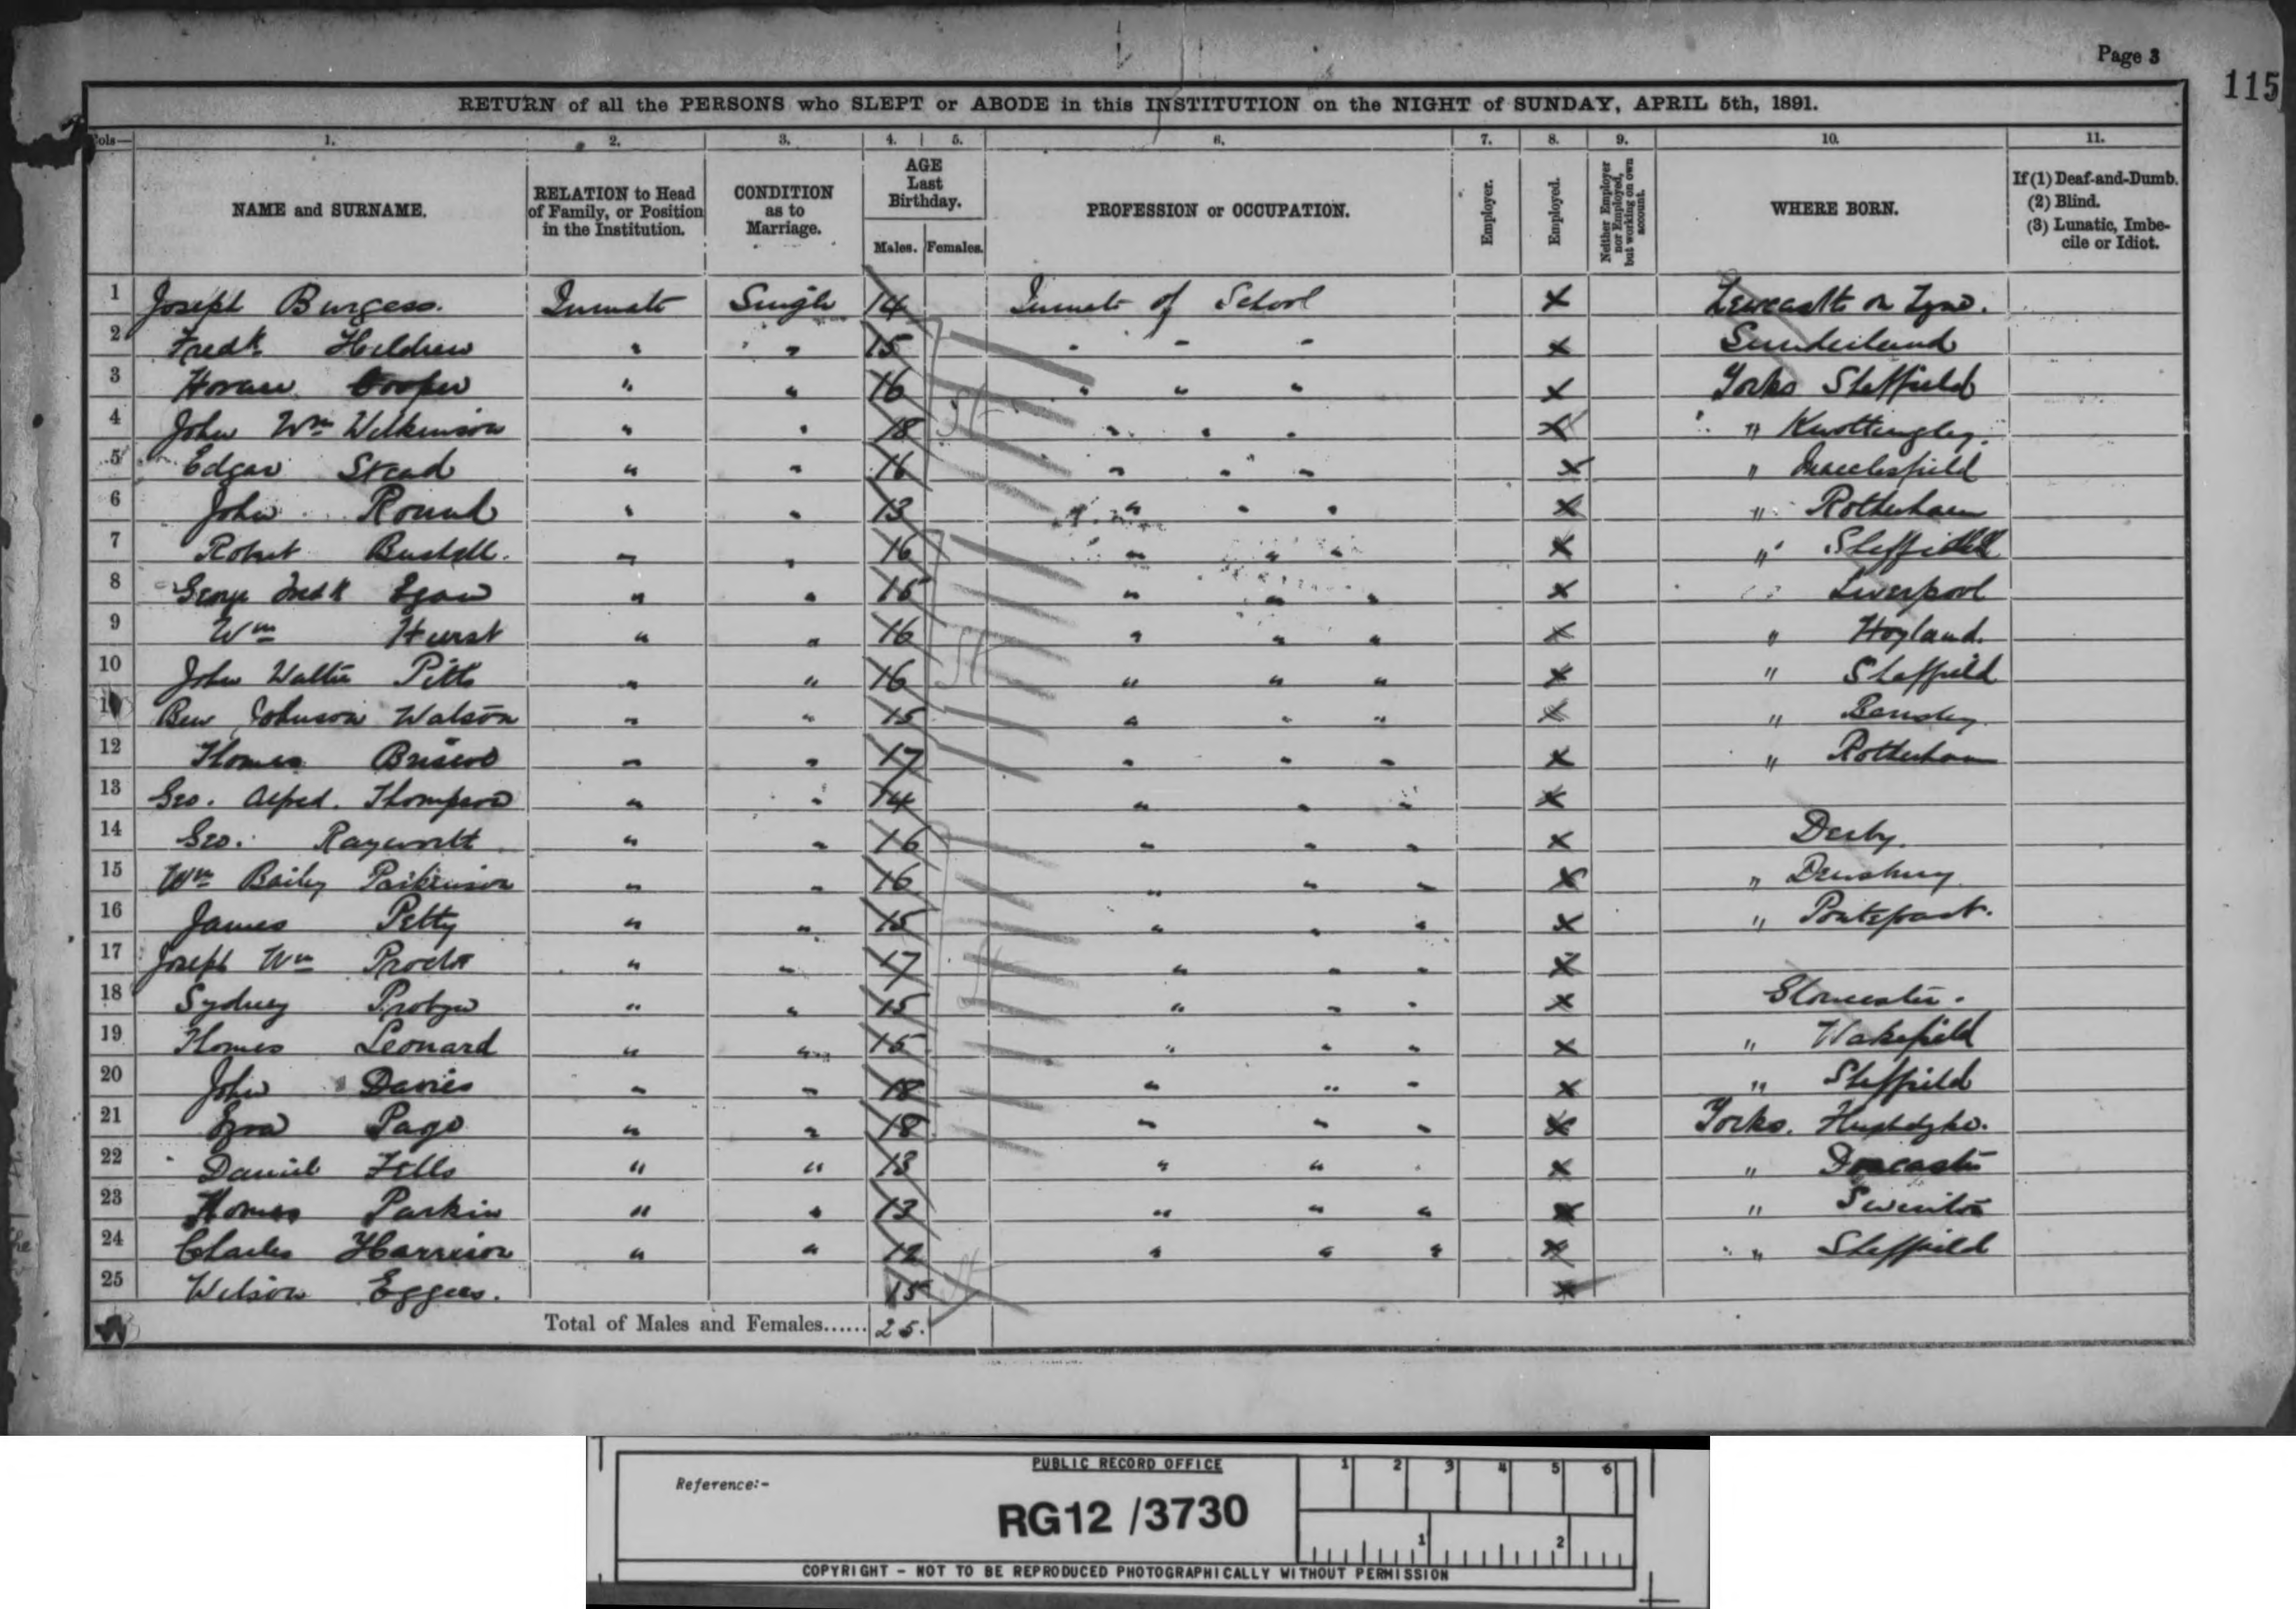 Page 3
115
RETURN of all the PERSONS who SLEPT or ABODE in this INSTITUTION on the NIGHT of SUNDAY, APRIL 5th, 1891.
ols— 1. 2. 3. 4. 5. 6. 7. 8. 9. 10. 11.
NAME and SURNAME. RELATION to Head of Family, or Position in the Institution. CONDITION as to Marriage. AGE Last Birthday. Males. Females. PROFESSION or OCCUPATION. Employer. Employed. Neither Employer nor Employed, but working on own account. WHERE BORN. If (1) Deaf-and-Dumb. (2) Blind. (3) Lunatic, Imbecile or Idiot.
1 Joseph Burgess. Inmate Single 14 Inmate of School × Newcastle on Tyne.
2 Fredk " " 15 " " " × Sunderland
3 Horace Cooper " " 16 " " " × Yorks Sheffield
4 John Wm Wilkinson " " 18 " " " × " Knottingley.
5 Edgar Stead " " 16 " " " × " Macclesfield
6 John Round " " 13 " " " × " Rotherham
7 Robert " " 16 " " " × " Sheffield
8 George Fredk Egan " " 15 " " " × " Liverpool
9 Wm Hurst " " 16 " " " × " Hoyland.
10 John Walter Pitts " " 16 " " " × " Sheffield
11 Ben Johnson Watson " " 15 " " " × "
12 Thomas Briscoe " " 17 " " " × " Rotherham
13 Geo. Alfred. Thompson " " 14 " " " ×
14 Geo. Rayworth " " 16 " " " × Derby.
15 Wm Bailey Parkinson " " 16 " " " × " Dewsbury
16 James Petty " " 15 " " " × " Pontefract.
17 Joseph Wm Proctor " " 17 " " " ×
18 Sydney Probyn " " 15 " " " × Gloucester.
19 Thomas Leonard " " 15 " " " × " Wakefield
20 John Davies " " 18 " " " × " Sheffield
21 Ezra Page " " 18 " " " × Yorks.
22 Daniel Fells " " 13 " " " × " Doncaster
23 Thomas Parkin " " 13 " " " × " Swinton
24 Charles Harrison " " 12 " " " × " Sheffield
25 Wilson Eggers. 15 ×
Total of Males and Females...... 25.
PUBLIC RECORD OFFICE
1 2 3 4 5 6
Reference:-
RG12 /3730
1 2
COPYRIGHT - NOT TO BE REPRODUCED PHOTOGRAPHICALLY WITHOUT PERMISSION